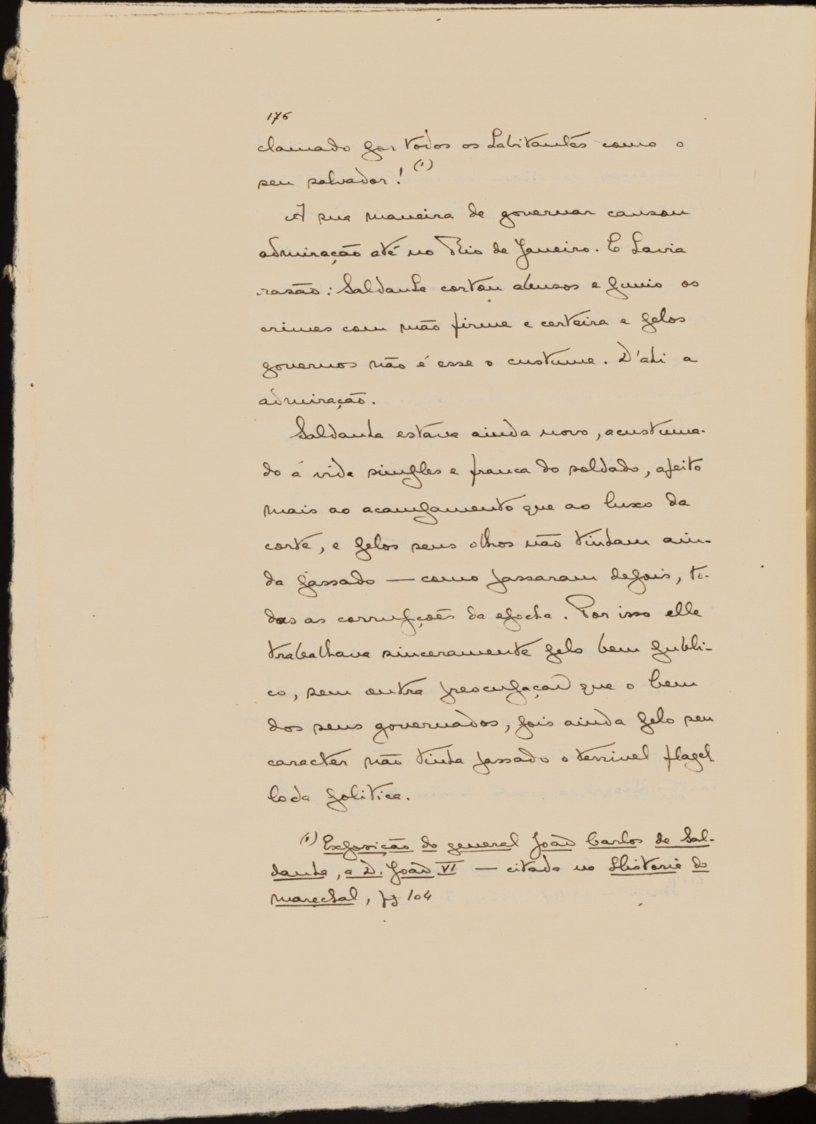 176
clamado por todos os habitantes como o
seu salvador! (1)
A sua maneira de governar causou
admiração até no Rio de Janeiro. E havia
razão: Saldanha cortou abusos e punio os
crimes com mão firme e certeira e pelos
governos não é esse o custume. D'ahi a
admiração.
Saldanha estava ainda novo, acustuma-
do á vida simples e franca do soldado, afeito
mais ao acampamento que ao luxo da
corte, e pelos seus olhos não tinham ain-
da passado — como passaram depois, to-
das as corrupções da epocha. Por isso elle
trabalhava sinceramente pelo bem publi-
co, sem outra preocupação que o bem
dos seus governados, pois ainda pelo seu
caracter não tinha passado o terrivel flagel
lo da politica.
(1) Exposição do general João Carlos de Sal-
danha, a D. João VI — citada na Historia do
marechal, pg 104